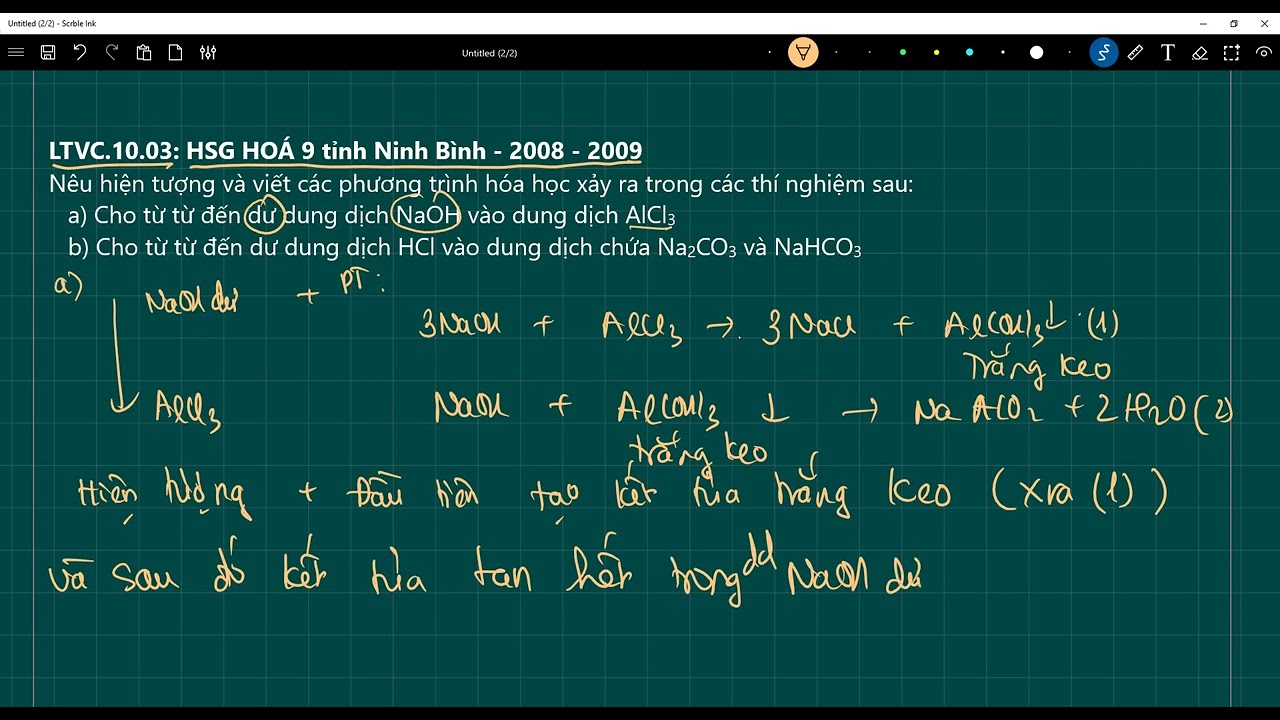 Untitled (2/2) - Scrble Ink
Untitled (2/2)
LTVC.10.03: HSG HOÁ 9 tỉnh Ninh Bình - 2008 - 2009
Nêu hiện tượng và viết các phương trình hóa học xảy ra trong các thí nghiệm sau:
a) Cho từ từ đến dư dung dịch NaOH vào dung dịch AlCl₃
b) Cho từ từ đến dư dung dịch HCl vào dung dịch chứa Na₂CO₃ và NaHCO₃
a) NaOH dư + PT:
3NaOH + AlCl₃ → 3NaCl + Al(OH)₃↓ (1)
Trắng keo
AlCl₃ NaOH + Al(OH)₃ ↓ → NaAlO₂ + 2H₂O (2)
trắng keo
Hiện tượng + Đầu tiên tạo kết tủa trắng keo (Xra (1))
và sau đó kết tủa tan hết trong dd NaOH dư